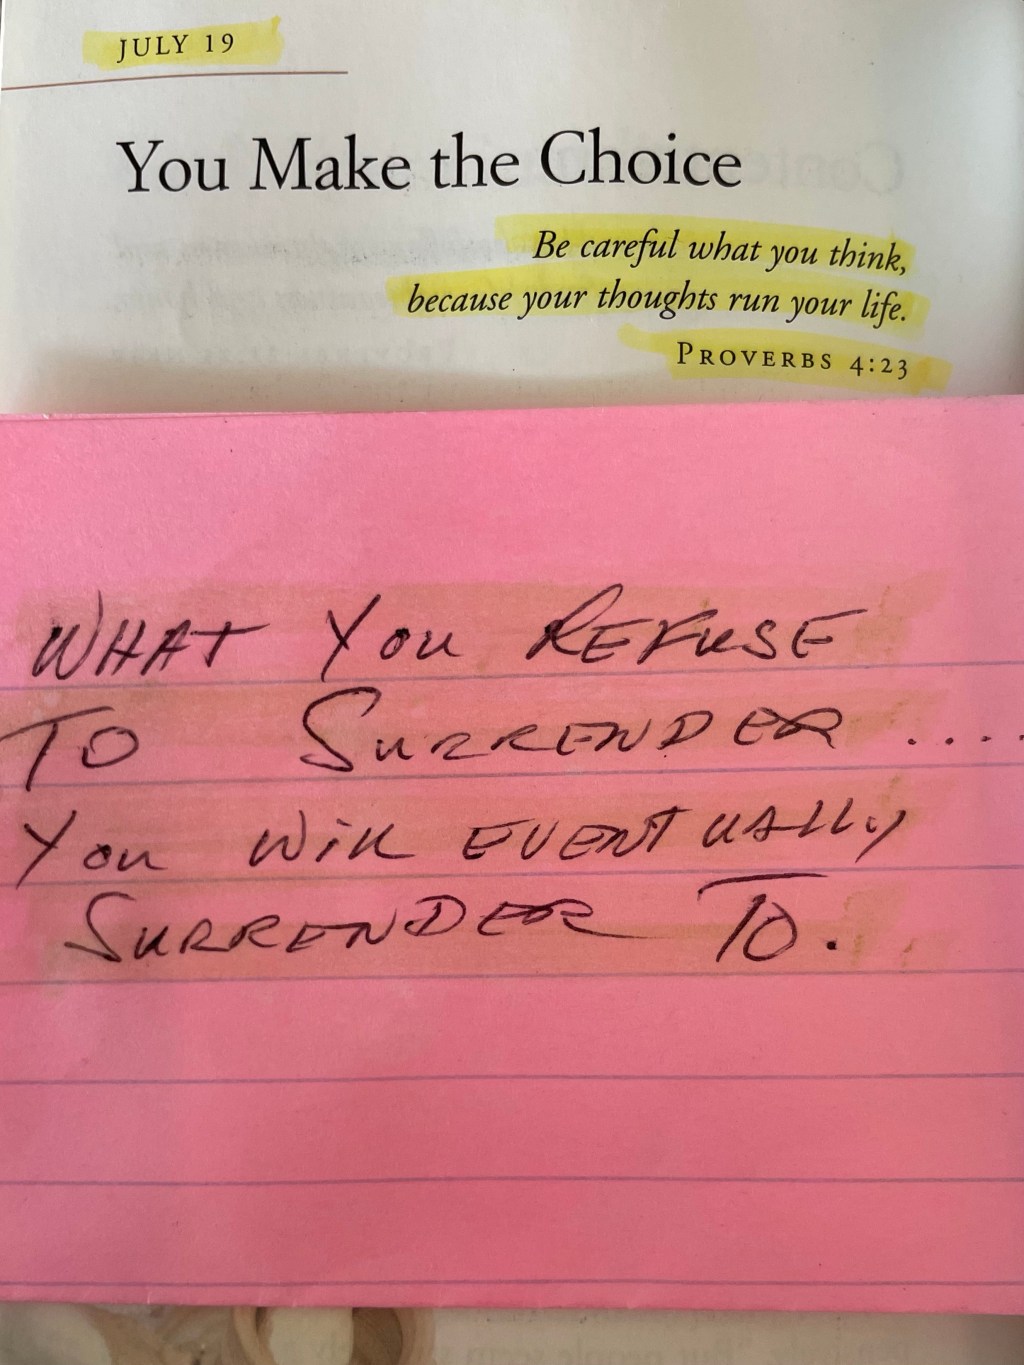 JULY 19
You Make the Choice
Be careful what you think,
because your thoughts run your life.
PROVERBS 4:23
WHAT YOU REFUSE
TO SURRENDER ....
YOU WILL EVENTUALLY
SURRENDER TO.